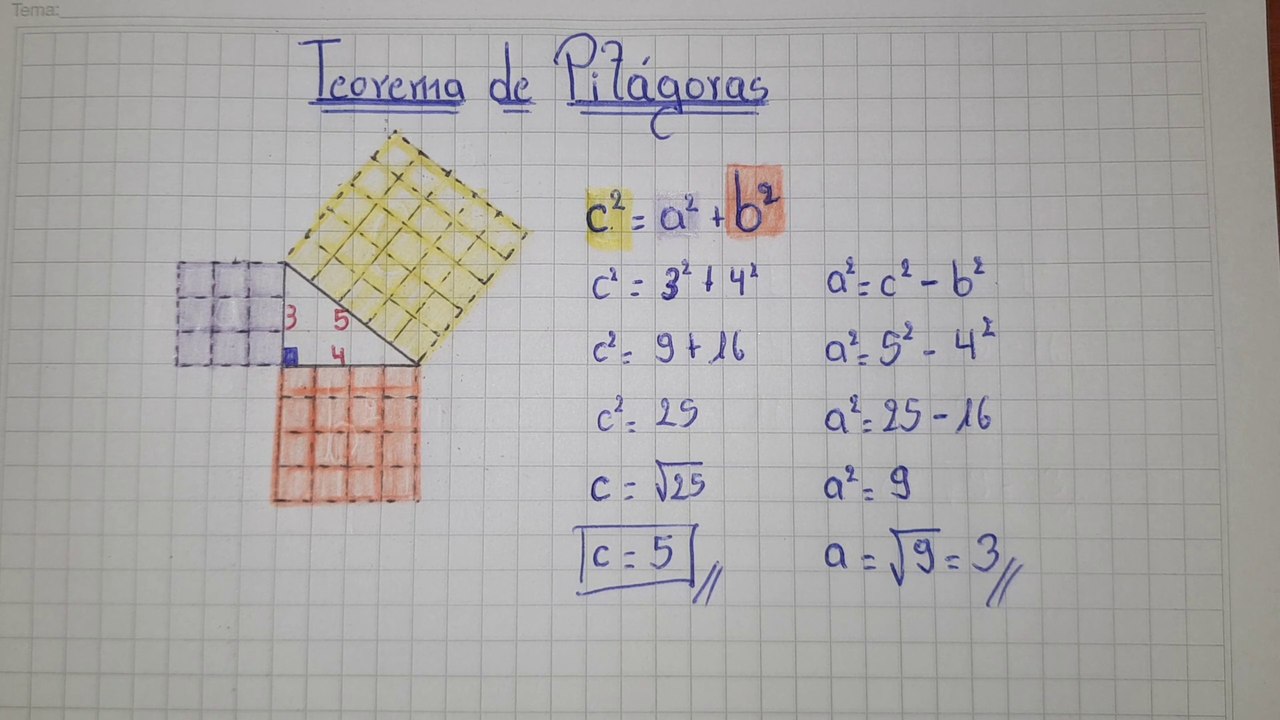 Tema:
Teorema de Pitágoras
c
c² = a² + b²
3 5
4
c² = 3² + 4²
c² = 9 + 16
c² = 25
c = √25
c = 5
a² = c² - b²
a² = 5² - 4²
a² = 25 - 16
a² = 9
a = √9 = 3